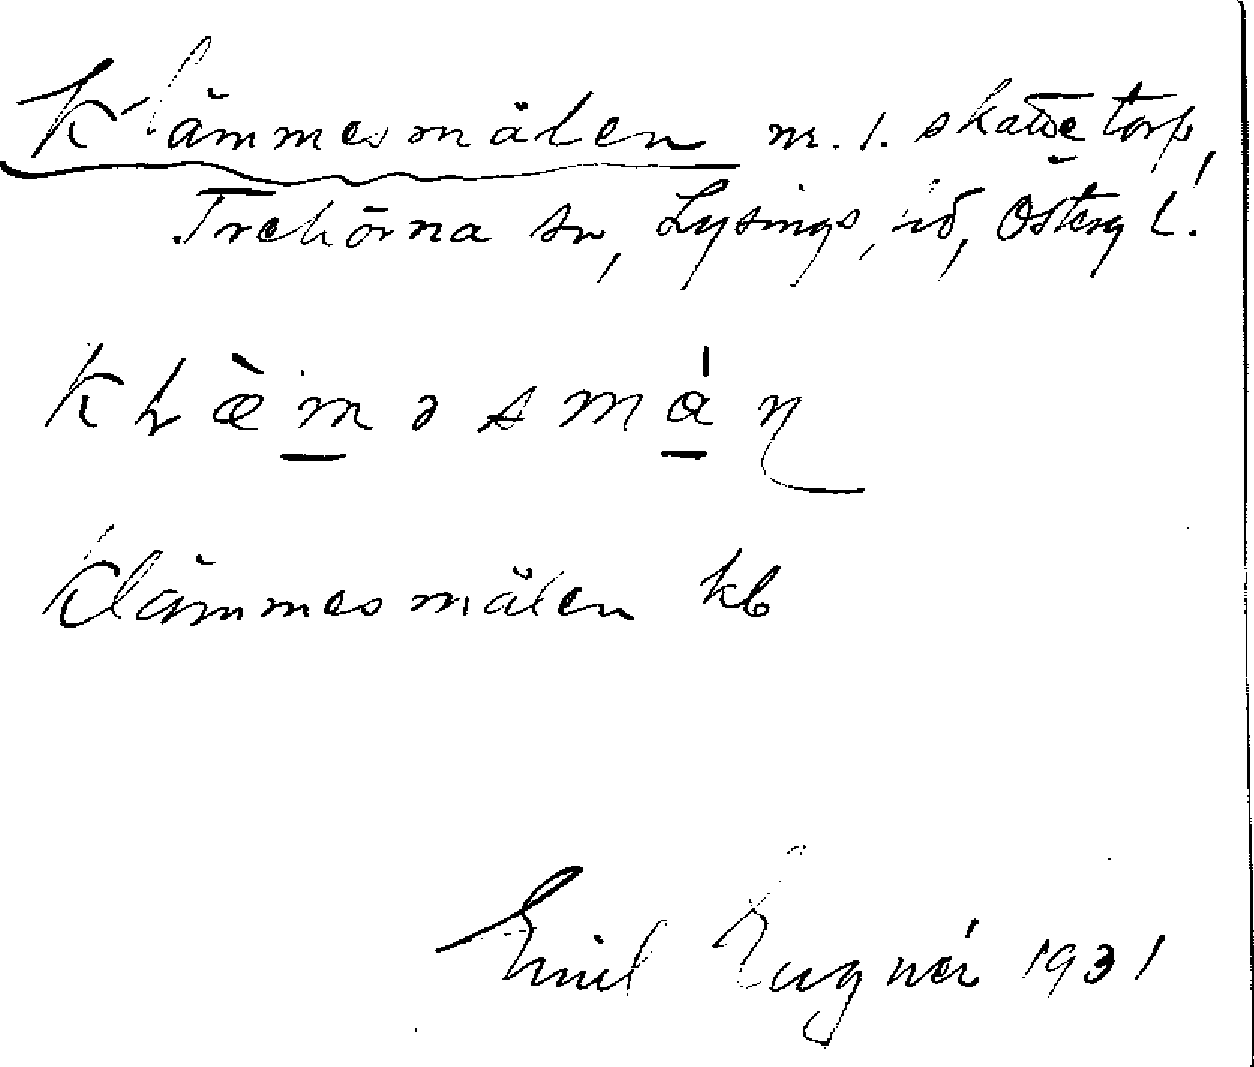 Klämmesmålen nr. 1. skatte torp,
Trehörna sn, Lysings, hd, Österg L.
Klæ̀məsmán
Klämmesmålen kb
Emil Lugnér 1931